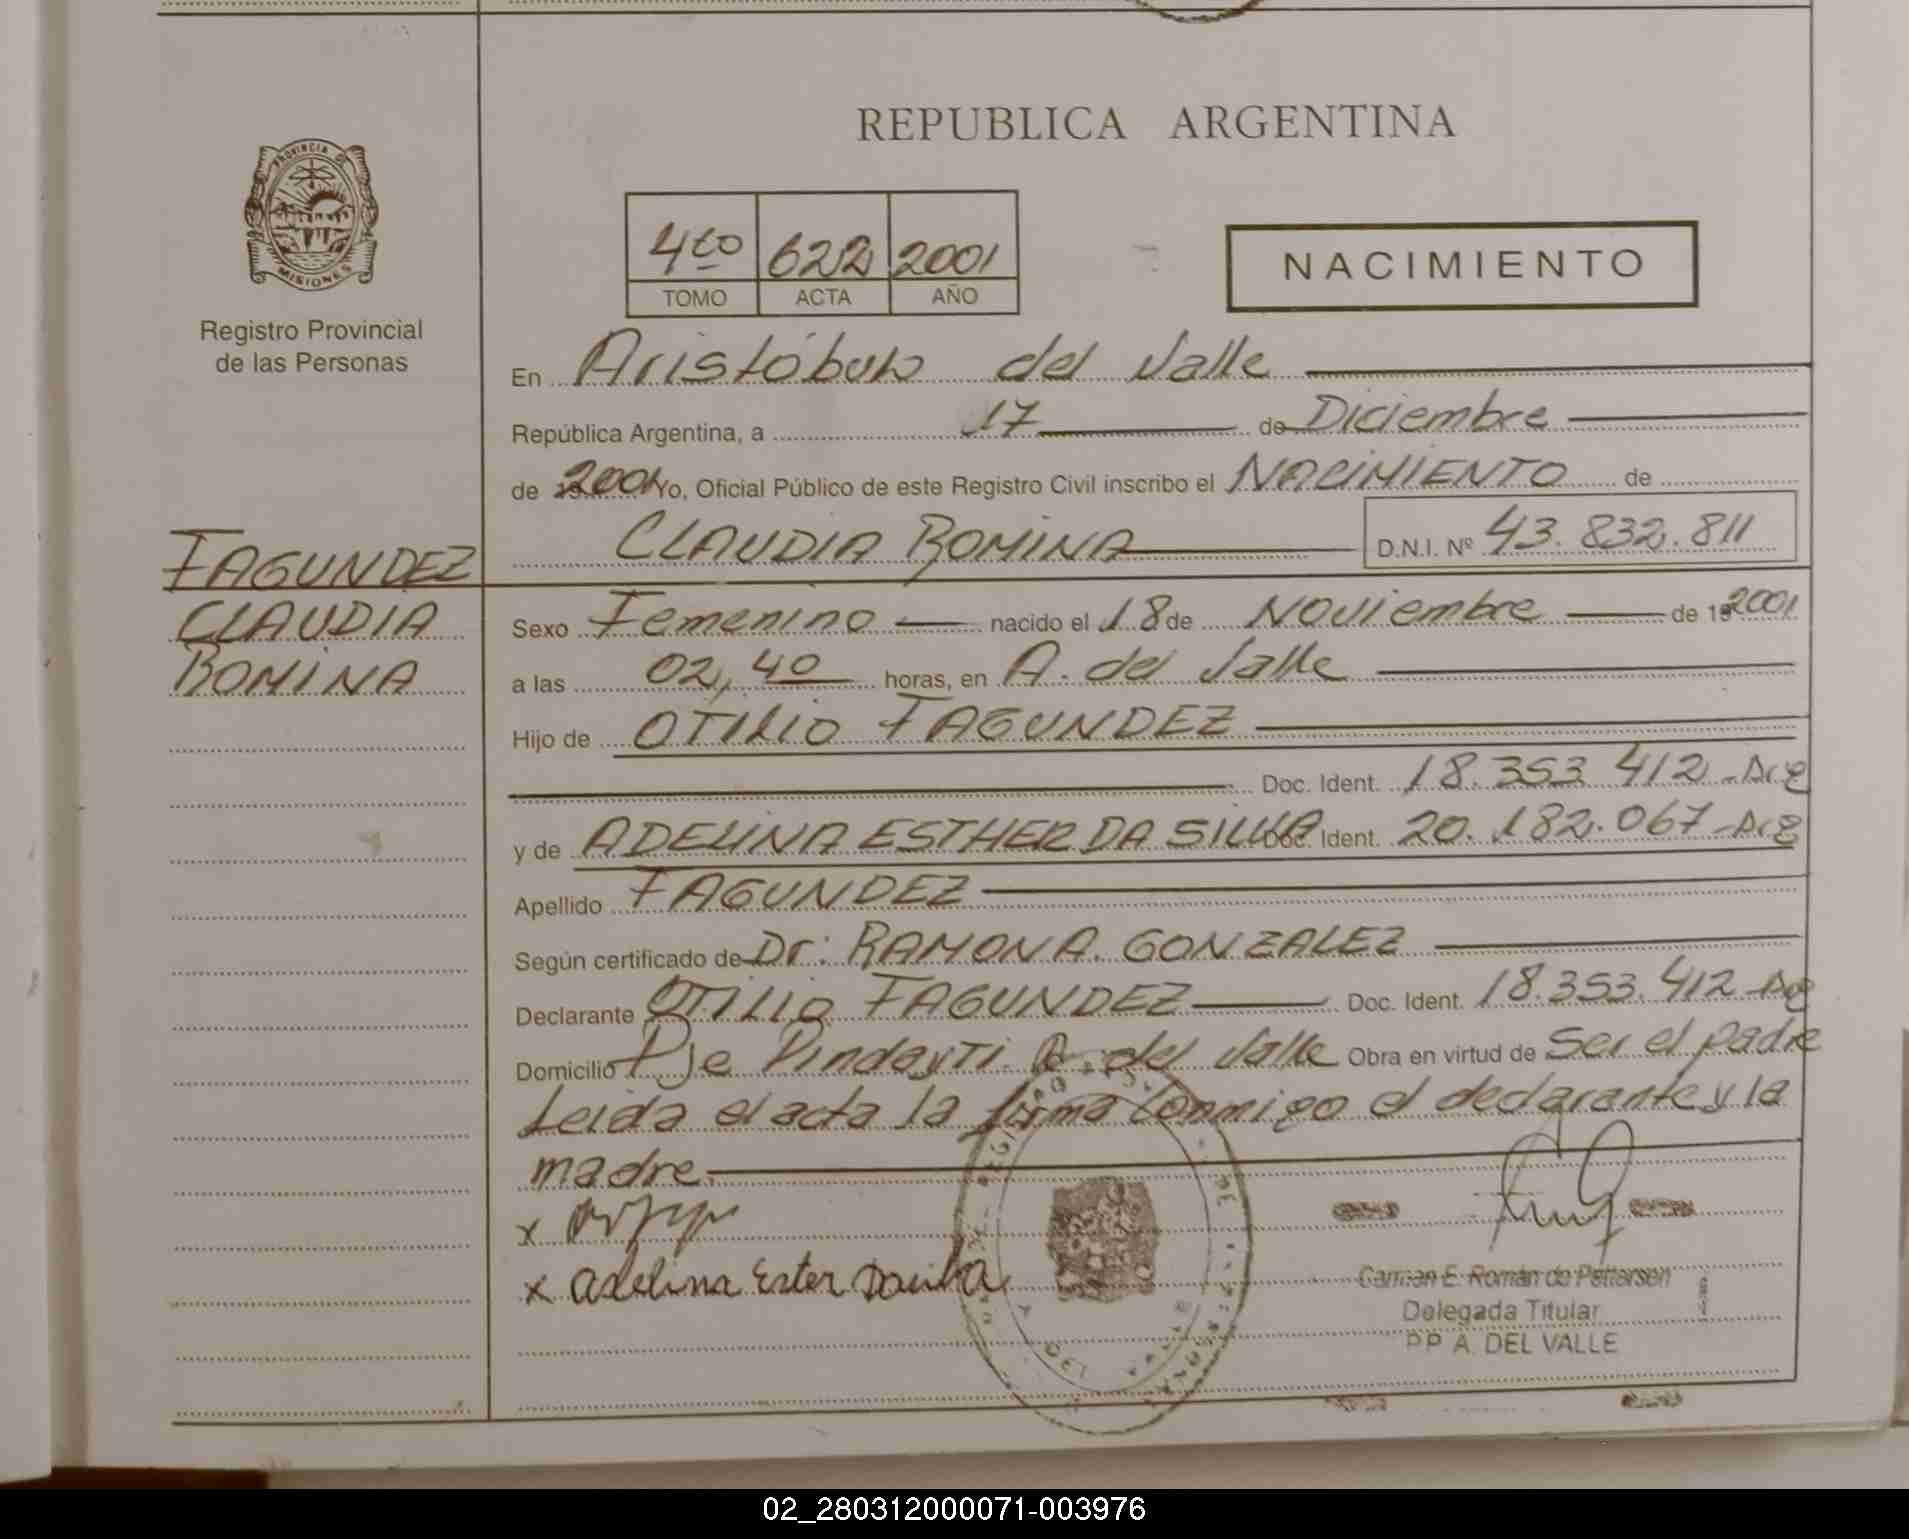 REPUBLICA ARGENTINA
PROVINCIA DE
MISIONES
Registro Provincial
de las Personas
4to 622 2001
TOMO ACTA AÑO
NACIMIENTO
En Aristóbulo del Valle
República Argentina, a 17 de Diciembre
de 2001 Yo, Oficial Público de este Registro Civil inscribo el NACIMIENTO de
CLAUDIA ROMINA D.N.I. Nº 43.832.811
FAGUNDEZ
CLAUDIA
ROMINA
Sexo Femenino nacido el 18 de Noviembre de 19 2001
a las 02,40 horas, en A. del Valle
Hijo de OTILIO FAGUNDEZ
Doc. Ident. 18.353.412-Arg
y de ADELINA ESTHER DA SILVA Doc. Ident. 20.182.067-Arg
Apellido FAGUNDEZ
Según certificado de Dr: RAMON A. GONZALEZ
Declarante OTILIO FAGUNDEZ Doc. Ident. 18.353.412-Arg
Domicilio Pje Pindayti A. del Valle Obra en virtud de Ser el padre
Leida el acta la firma conmigo el declarante y la
madre.
x
x adelina Ester
Carmen E. Román de Pettersen
Delegada Titular
P.P A. DEL VALLE
02_280312000071-003976